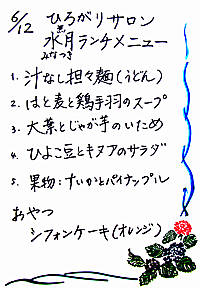 6/12 ひろがりサロン
水無月ランチメニュー
みなつき
1. 汁なし担々麺(うどん)
2. はと麦と鶏手羽のスープ
3. 大葉とじゃが芋のいため
4. ひよこ豆とキヌアのサラダ
5. 果物:すいかとパイナップル
おやつ
シフォンケーキ(オレンジ)